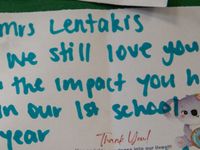 Mrs Lentakis
we still love you
the impact you h
in our 1st school
year
Thank You!